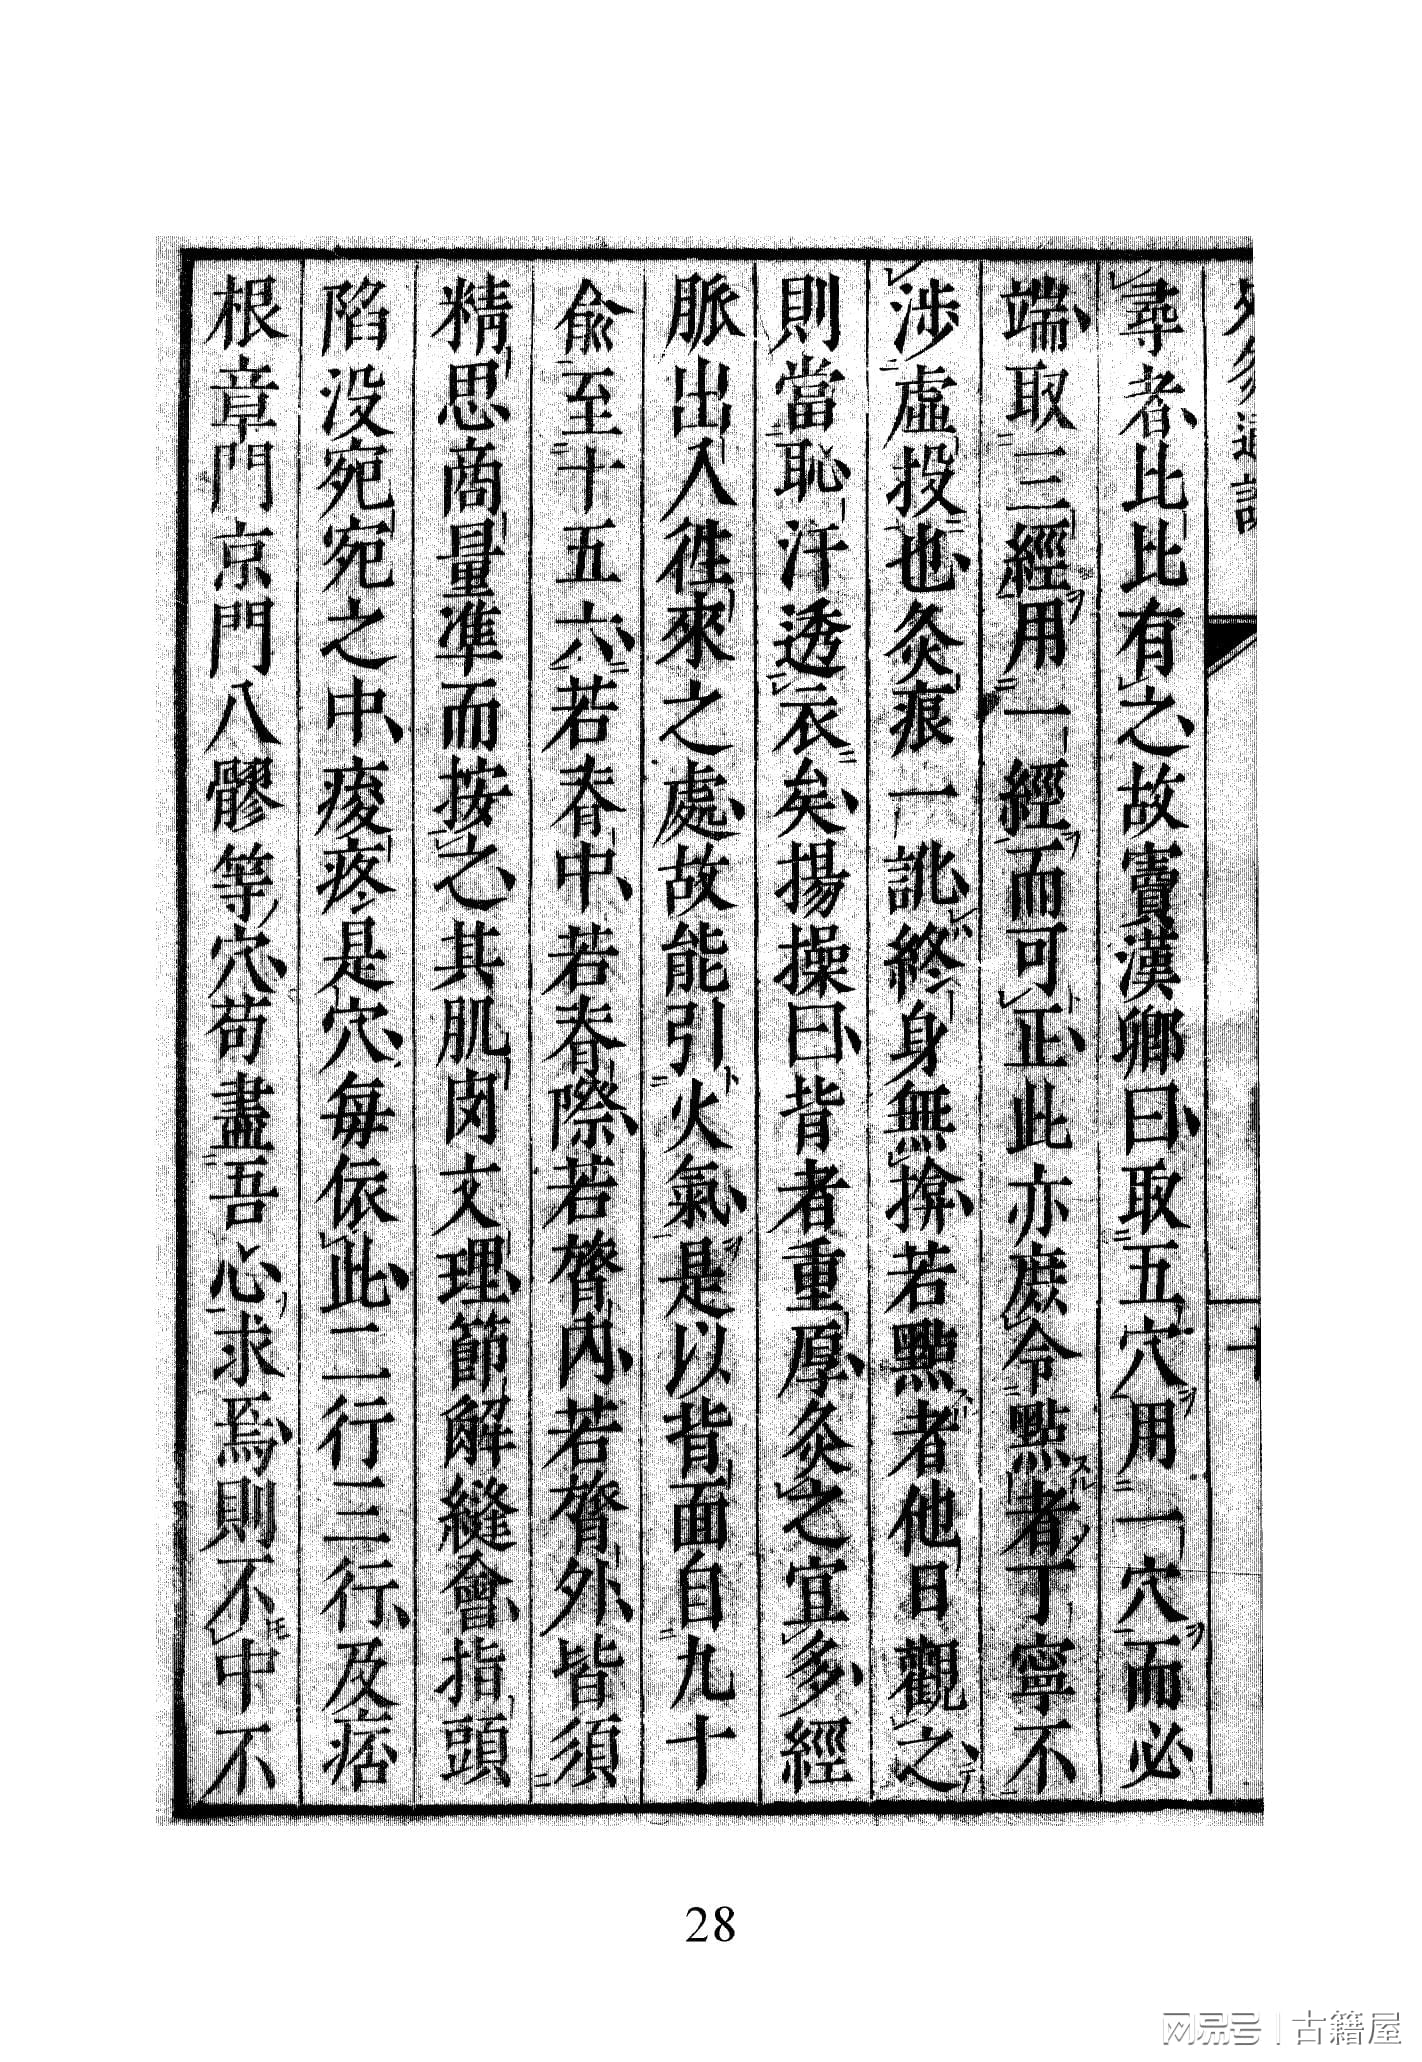 尋者比比有之故竇漢卿曰取五穴用一穴而必
端取三經用一經而可正此亦庶令點者丁寧不
涉虛投也灸痕一訛終身無揜若點者他日觀之
則當恥汗透衣矣揚操曰背者重厚灸之宜多經
脈出入徃來之處故能引火氣是以背面自九十
俞至十五六若脊中若脊際若膂內若膂外皆須
精思商量準而按之其肌肉文理節解縫會指頭
陷没宛宛之中痠疼是穴每依此二行三行及痞
根章門京門八髎等穴苟盡吾心求焉則不中不
28
网易号 | 古籍屋